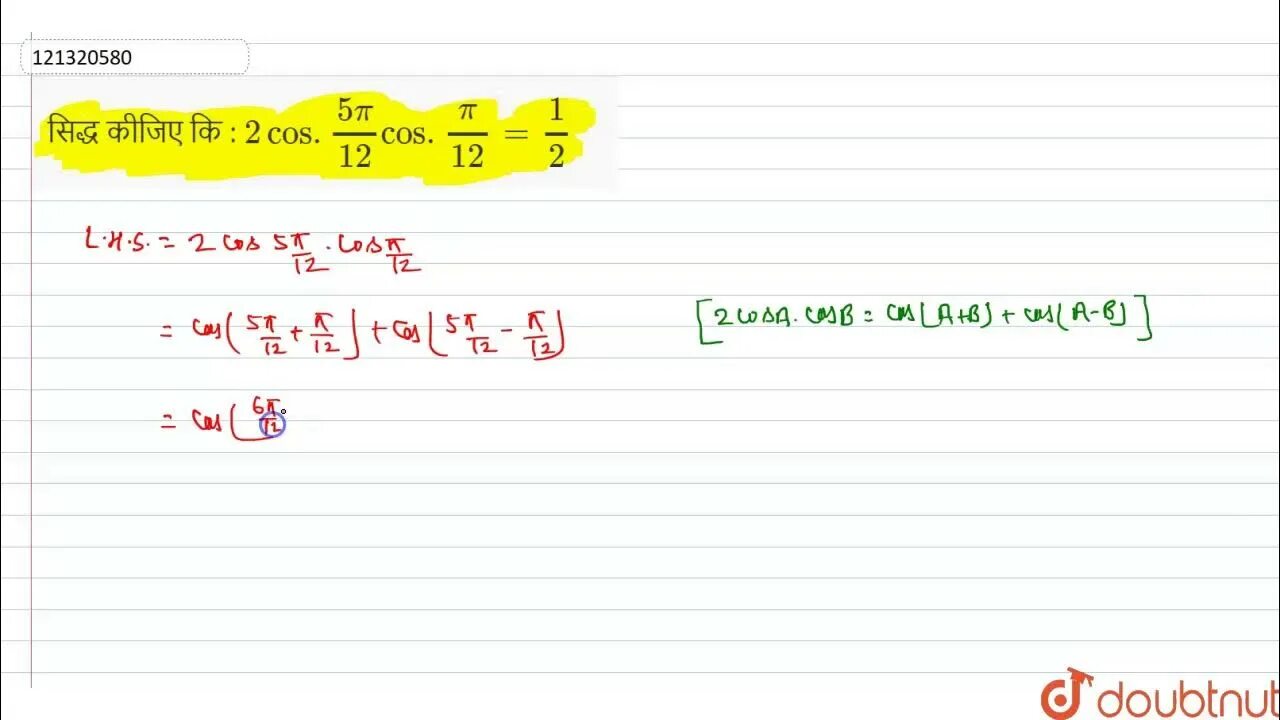 121320580
सिद्ध कीजिए कि : 2 cos. 5π/12 cos. π/12 = 1/2
L.H.S. = 2 cos 5π/12 . cos π/12
= cos(5π/12 + π/12) + cos(5π/12 - π/12)
[2 cosA. cosB = cos(A+B) + cos(A-B)]
= cos(6π/12
doubtnut